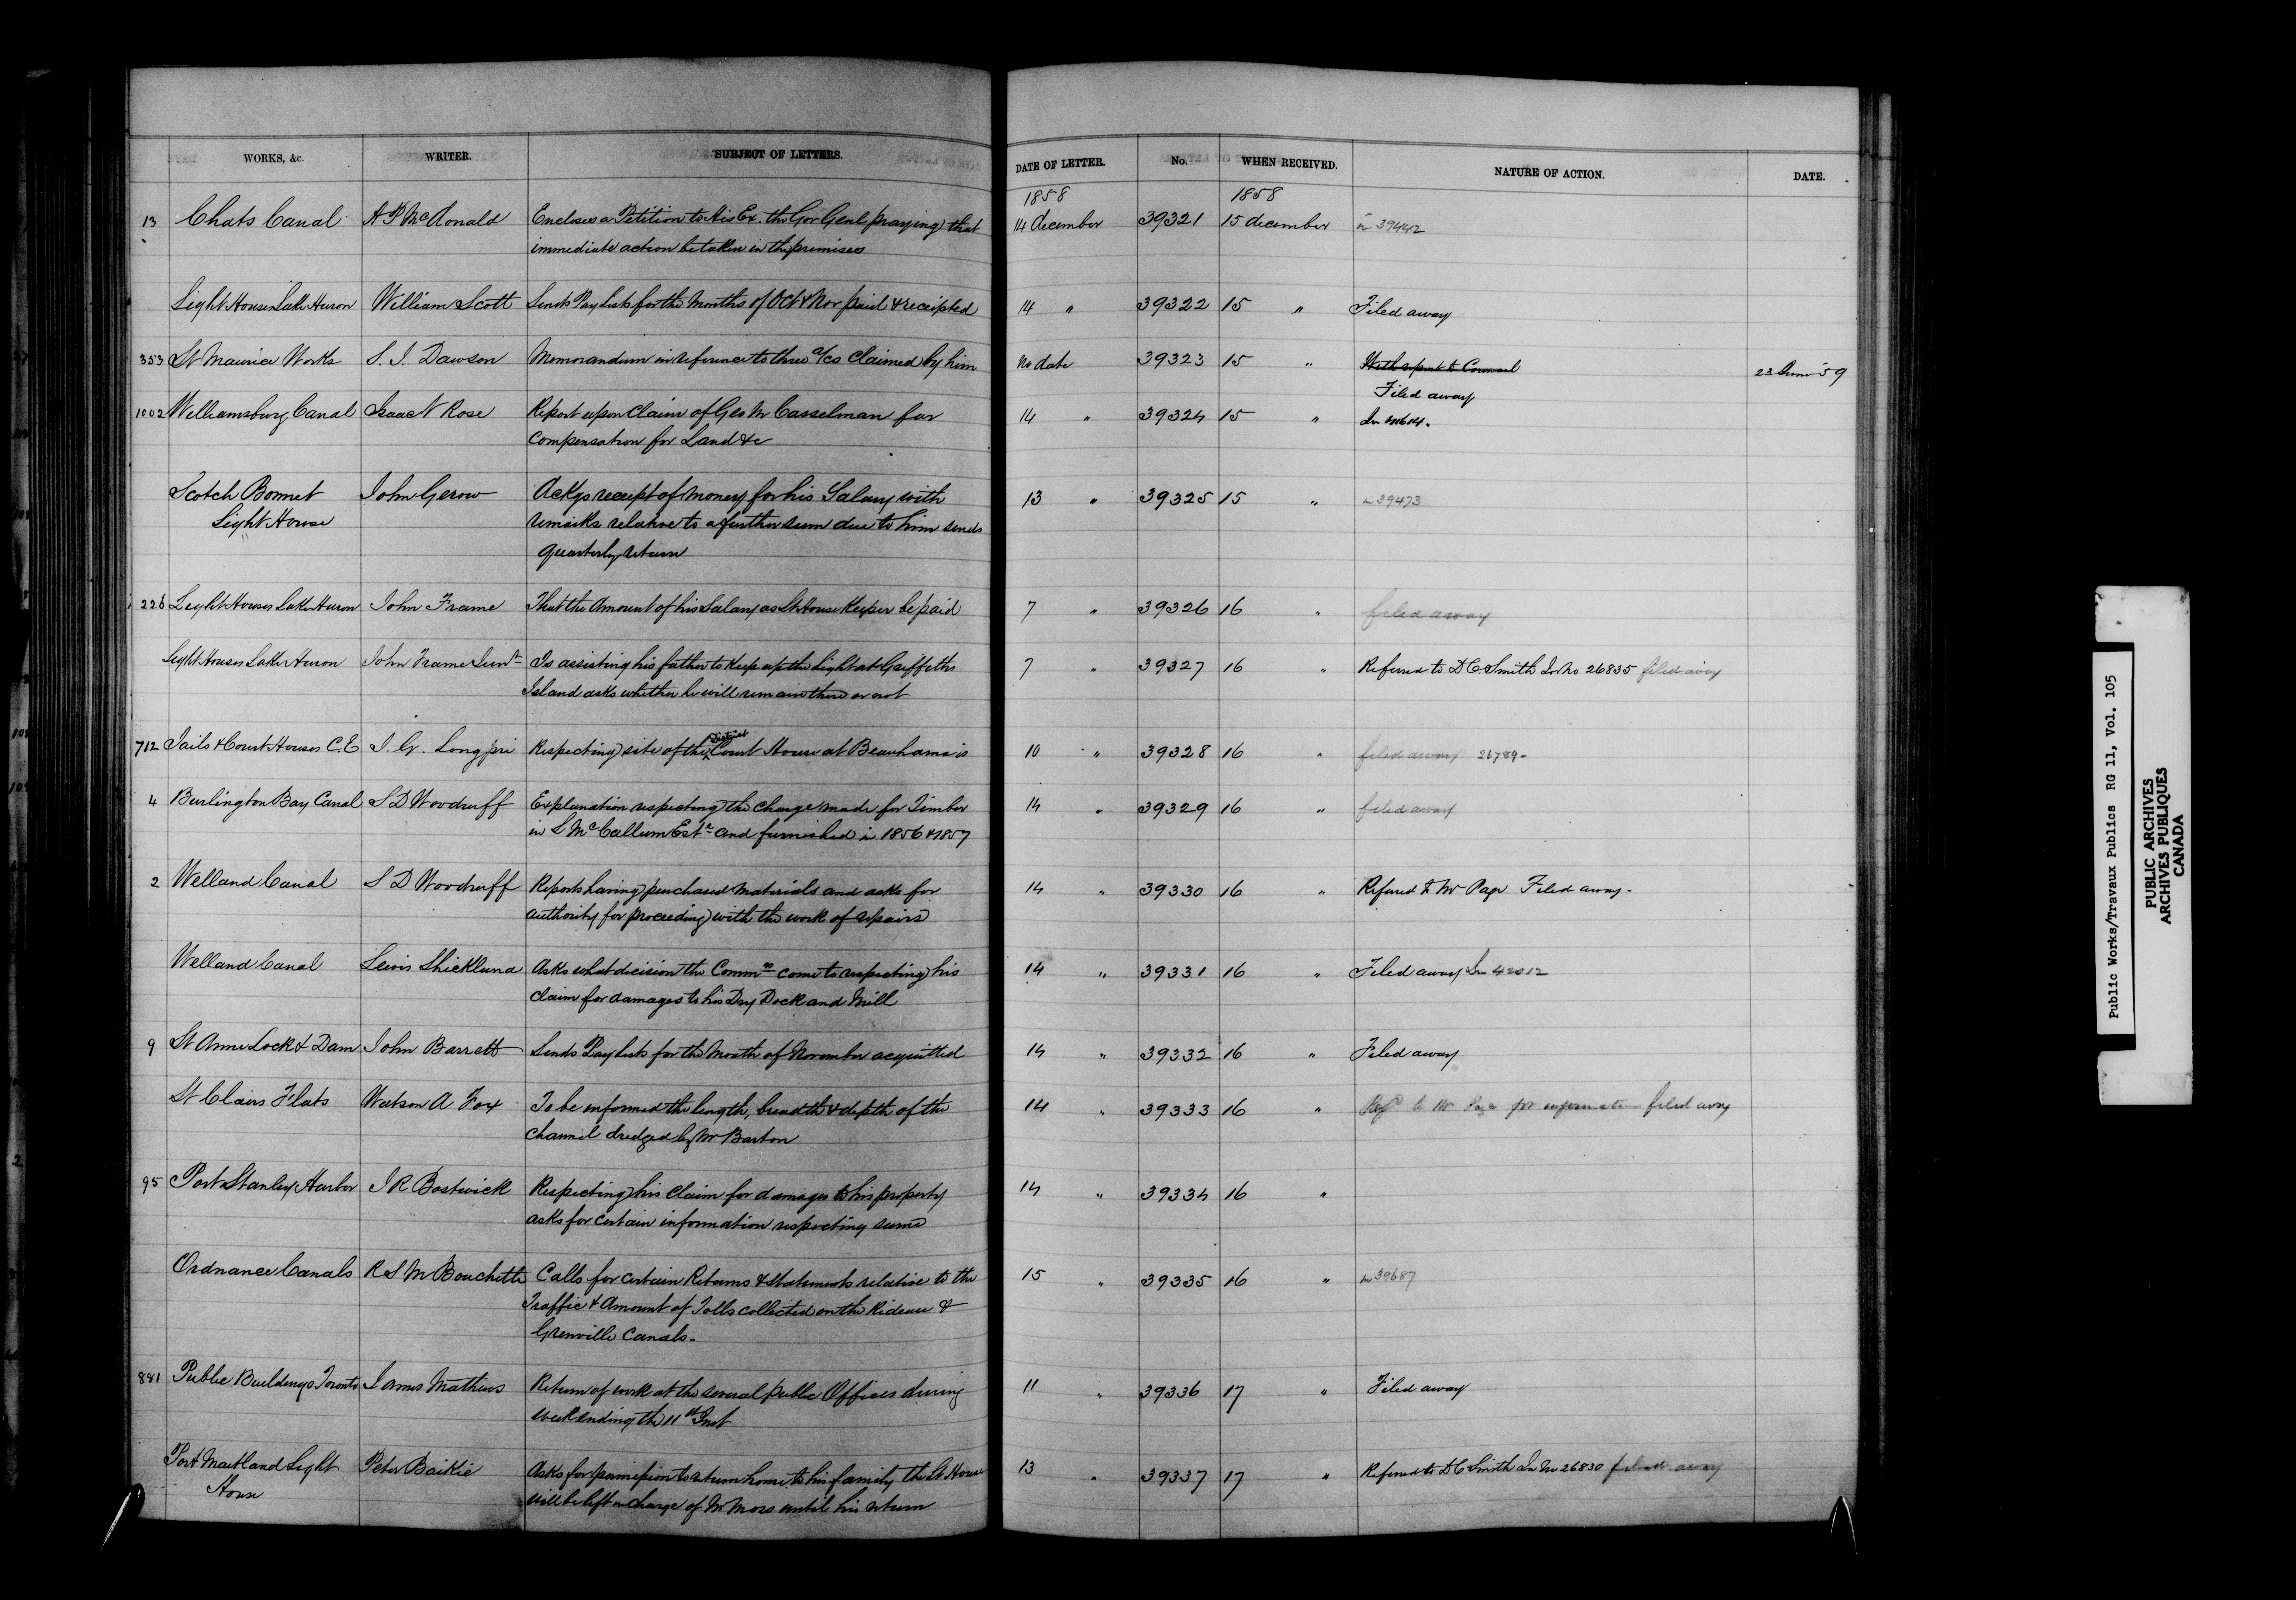 WORKS, &c. WRITER. SUBJECT OF LETTERS. DATE OF LETTER. No. WHEN RECEIVED. NATURE OF ACTION. DATE.
1858 1858
13 Chats Canal A P McDonald Encloses a Petition to His Ex. the Gov Genl praying that 14 december 39321 15 december in 39442
immediate action be taken in the premises
Light Houses Lake Huron William Scott Sends Pay Lists for the Months of Oct & Nov paid & receipted 14 " 39322 15 " Filed away
353 St Maurice Works S. J. Dawson Memorandum in reference to three a/cs claimed by him No date 39323 15 " With report to Counsel 23 59
Filed away
1002 Williamsburg Canal Isaac N Rose Report upon Claim of Geo M Casselman for 14 " 39324 15 "
Compensation for Land &c
Scotch Bonnet John Gerow Ackgs receipt of money for his Salary with 13 " 39325 15 " in 39473
Light House remarks relative to a further sum due to him sends
quarterly return
226 Light Houses Lake Huron John Frame That the Amount of his Salary as Lt House Keeper be paid 7 " 39326 16 " filed away
Light Houses Lake Huron John Frame Junr Is assisting his father to keep up the Light at Griffeths 7 " 39327 16 " Referred to D C Smith In No 26835 filed away
Island asks whether he will remain there or not
712 Jails & Court Houses C.E J. G. Longpri Respecting site of the District Court House at Beauharnois 10 " 39328 16 " filed away 26789-
4 Burlington Bay Canal S D Woodruff Explanation respecting the Charge made for Timber 14 " 39329 16 " filed away
in S McCallum Este and furnished in 1856 & 1857
2 Welland Canal S D Woodruff Reports having purchased materials and asks for 14 " 39330 16 " Referred to Mr Page Filed away-
authority for proceeding with the work of repairs
Welland Canal Lewis Shickluna Asks what decision the Commrs come to respecting his 14 " 39331 16 " Filed away In 42012
Claim for damages to his Dry Dock and Mill
9 St Anne Lock & Dam John Barrett Sends Pay Lists for the Month of November acquitted 14 " 39332 16 " Filed away
St Clairs Flats Watson A Fox To be informed the length, breadth & depth of the 14 " 39333 16 " Refd to Mr Page for information filed away
Channel dredged by Mr Barton
95 Port Stanley Harbor J R Bostwick Respecting his Claim for damages to his property 14 " 39334 16 "
asks for certain information respecting same
Ordnance Canals R S M Bouchette Calls for certain Returns & Statements relative to the 15 " 39335 16 " in 39687
Traffic & Amount of Tolls collected on the Rideau &
Grenville Canals-
881 Public Buildings Toronto James Mathews Return of work at the several public Offices during 11 " 39336 17 " Filed away
week ending the 11th Inst
Port Maitland Light Peter Baikie Asks for permission to return home to his family the Lt House 13 " 39337 17 " Referred to D C Smith In No 26830 filed away
House will be left in charge of Mr Moss until his return
Public Works/Travaux Publics RG 11, Vol. 105
PUBLIC ARCHIVES
ARCHIVES PUBLIQUES
CANADA